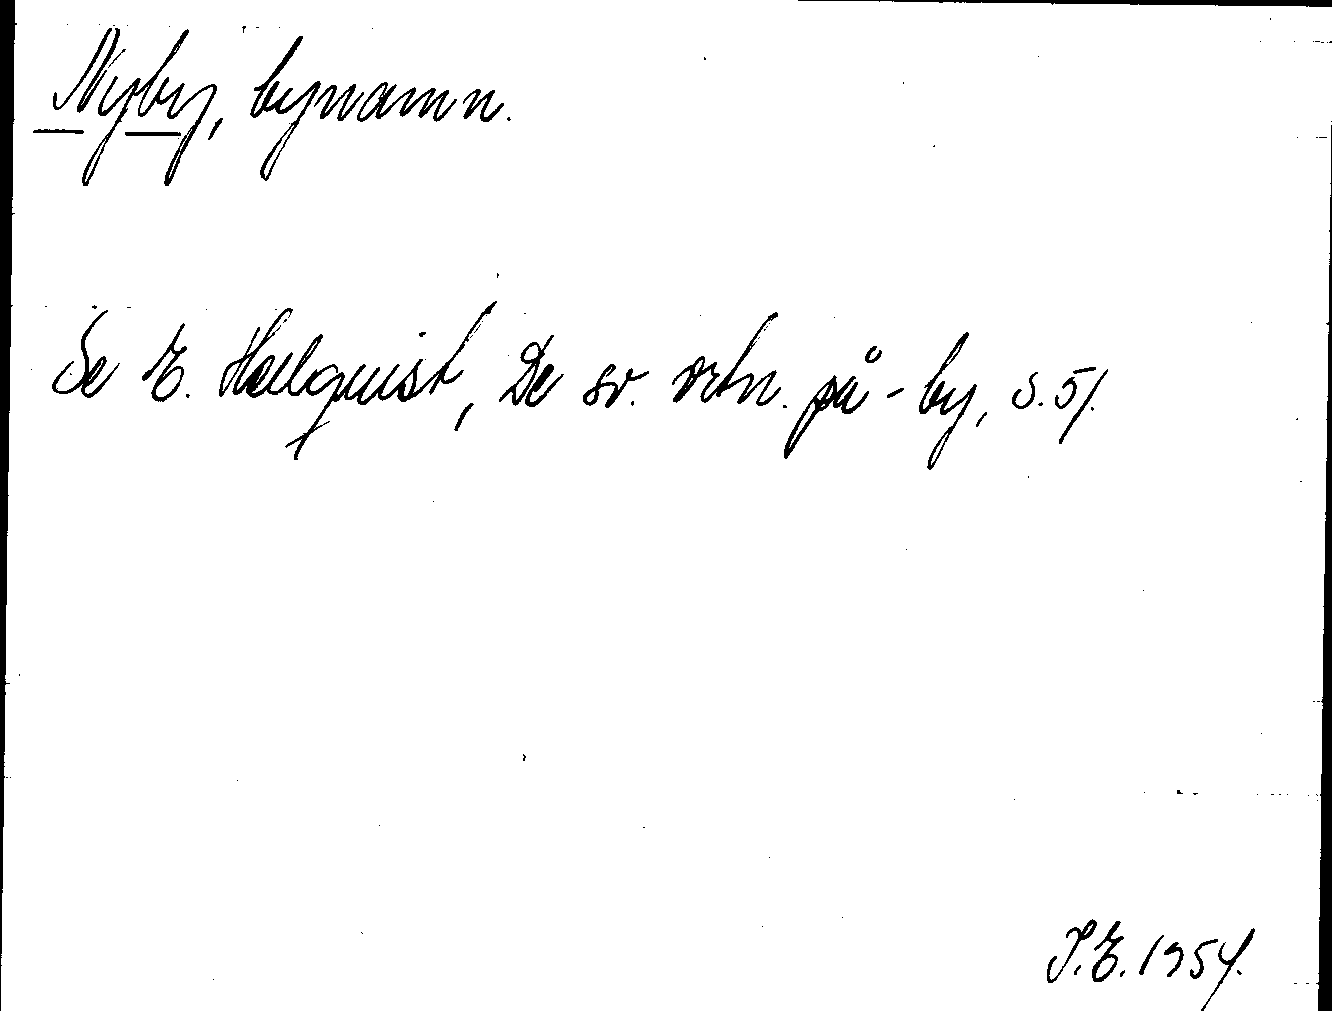 Nyby, bynamn.
Se E. Hellquist, De sv. ortn. på -by, s. 51.
S.E. 1954.